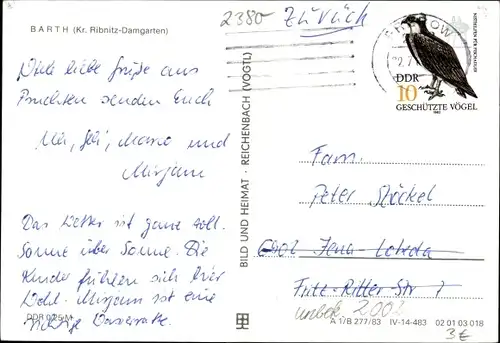 BARTH (Kr. Ribnitz-Damgarten)
2380 Zurück
Viele liebe Grüße aus
Pruchten senden Euch
Marco und
Mirjam
Das Wetter ist ganz toll.
Sonne über Sonne. Die
Kinder fühlen sich hier
wohl. Mirjam ist eine
richtige Wasserratte.
DDR 0,25 M
BILD UND HEIMAT · REICHENBACH (VOGTL)
DDR
10
GESCHÜTZTE VÖGEL
1982
Fam.
Peter Stöckel
6902 Jena-Lobeda
Fritz-Ritter-Str. 7
unbek. 2002
A 1/B 277/83 IV-14-483 02 01 03 018
3€